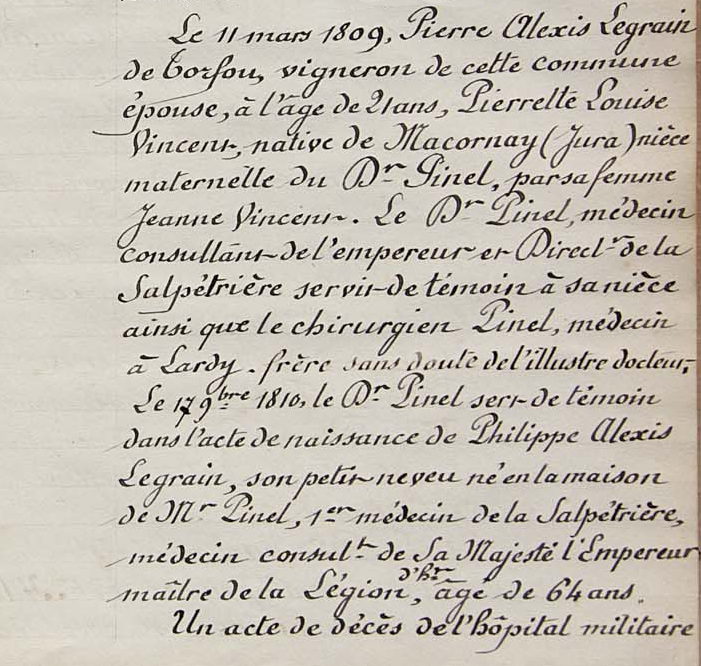 Le 11 mars 1809, Pierre Alexis Legrain
de Torfou, vigneron de cette commune
épouse, à l'âge de 21 ans, Pierrette Louise
Vincent, native de Macornay (Jura) nièce
maternelle du Dr Pinel, par sa femme
Jeanne Vincent. Le Dr Pinel, médecin
consultant de l'empereur et Direct.r de la
Salpétrière servit de témoin à sa nièce
ainsi que le chirurgien Pinel, médecin
à Lardy. frère sans doute de l'illustre docteur;
Le 17 9bre 1810, le Dr Pinel sert de témoin
dans l'acte de naissance de Philippe Alexis
Legrain, son petit neveu né en la maison
de Mr Pinel, 1er médecin de la Salpétrière,
médecin consult.t de Sa Majesté l'Empereur
maître de la Légion d'hr, âgé de 64 ans.
Un acte de décès de l'hôpital militaire